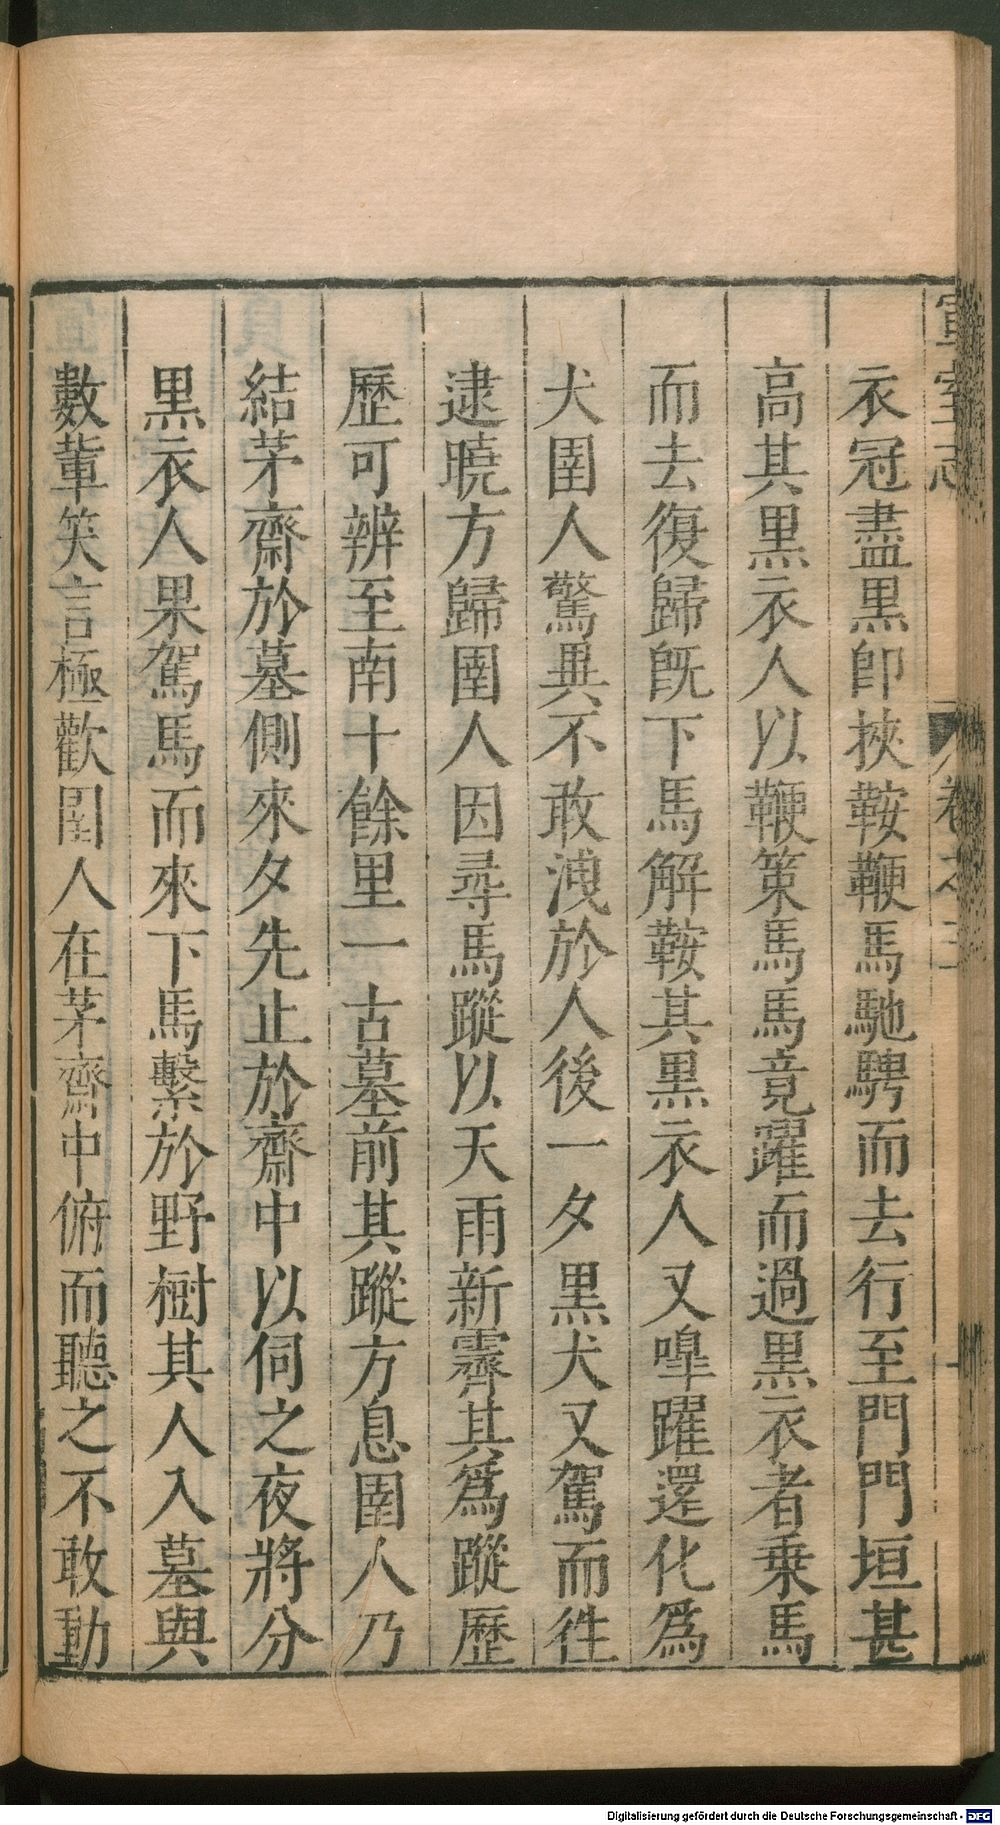 衣冠盡黒即挾鞍鞭馬馳騁而去行至門門垣甚
高其黒衣人以鞭策馬馬竟躍而過黒衣者乗馬
而去復歸旣下馬解鞍其黒衣人又嘷躍還化為
犬圉人驚異不敢洩於人後一夕黒犬又駕而徃
逮曉方歸圉人因尋馬蹤以天雨新霽其為蹤歷
歷可辨至南十餘里一古墓前其蹤方息圉人乃
結茅齋於墓側來夕先止於齋中以伺之夜將分
黒衣人果駕馬而來下馬繫於野樹其人入墓與
數輩笑言極歡圉人在茅齋中俯而聽之不敢動
Digitalisierung gefördert durch die Deutsche Forschungsgemeinschaft - DFG